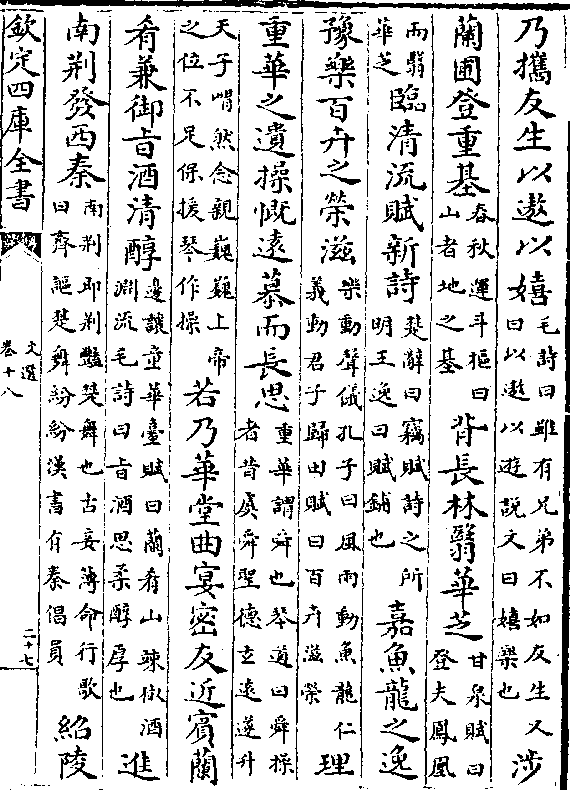 乃攜友生以遨以嬉毛詩曰雖有兄弟不如友生又曰以遨以遊說文曰嬉樂也涉
蘭圃登重基春秋運斗樞曰山者地之基背長林翳華芝甘泉賦曰登夫鳳凰
而翳華芝臨清流賦新詩楚辭曰竊賦詩之所明王逸曰賦鋪也嘉魚龍之逸
豫樂百卉之榮滋樂動聲儀孔子曰風雨動魚龍仁義動君子歸田賦曰百卉滋榮理
重華之遺操慨遠慕而長思重華謂舜也琴道曰舜操者昔虞舜聖德玄遠遂升
天子喟然念親巍巍上帝之位不足保援琴作操若乃華堂曲宴密友近賓蘭
肴兼御旨酒清醇邊讓童華臺賦曰蘭肴山竦椒酒淵流毛詩曰旨酒思柔醇厚也進
南荆發西秦南荆即荆豔楚舞也古妾薄命行歌曰齊謳楚舞紛紛漢書有秦倡員紹陵
欽定四庫全書
文選
卷十八
二十七